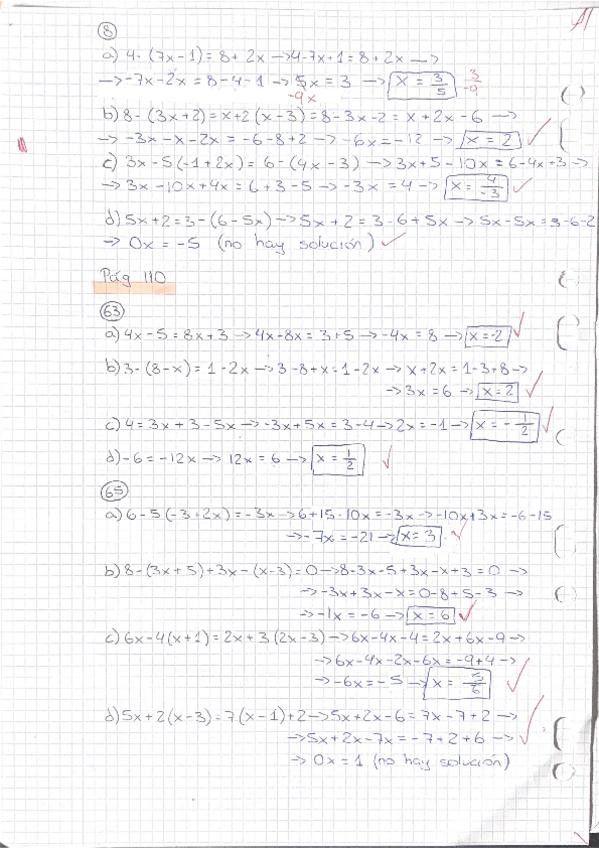 8
a) 4 - (7x-1) = 8+2x → 4-7x+1 = 8+2x →
→ -7x-2x = 8-4-1 → 5x = 3 → x = 3/5 3/-9
-9x
b) 8-(3x+2) = x+2(x-3) = 8-3x-2 = x+2x-6 →
→ -3x-x-2x = -6-8+2 → -6x = -12 → x = 2
c) 3x-5(-1+2x) = 6-(4x-3) → 3x+5-10x = 6-4x+3 →
→ 3x-10x+4x = 6+3-5 → -3x = 4 → x = 4/-3
d) 5x+2 = 3-(6-5x) → 5x+2 = 3-6+5x → 5x-5x = 3-6-2
→ 0x = -5 (no hay solución)
Pág 110
63
a) 4x-5 = 8x+3 → 4x-8x = 3+5 → -4x = 8 → x = -2
b) 3-(8-x) = 1-2x → 3-8+x = 1-2x → x+2x = 1-3+8 →
→ 3x = 6 → x = 2
c) 4 = 3x+3-5x → -3x+5x = 3-4 → 2x = -1 → x = -1/2
d) -6 = -12x → 12x = 6 → x = 1/2
65
a) 6-5(-3+2x) = -3x → 6+15-10x = -3x → -10x+3x = -6-15
→ -7x = -21 → x = 3
b) 8-(3x+5)+3x-(x-3) = 0 → 8-3x-5+3x-x+3 = 0 →
→ -3x+3x-x = 0-8+5-3 →
→ -1x = -6 → x = 6
c) 6x-4(x+1) = 2x+3(2x-3) → 6x-4x-4 = 2x+6x-9 →
→ 6x-4x-2x-6x = -9+4 →
→ -6x = -5 → x = 5/6
d) 5x+2(x-3) = 7(x-1)+2 → 5x+2x-6 = 7x-7+2 →
→ 5x+2x-7x = -7+2+6 →
→ 0x = 1 (no hay solución)